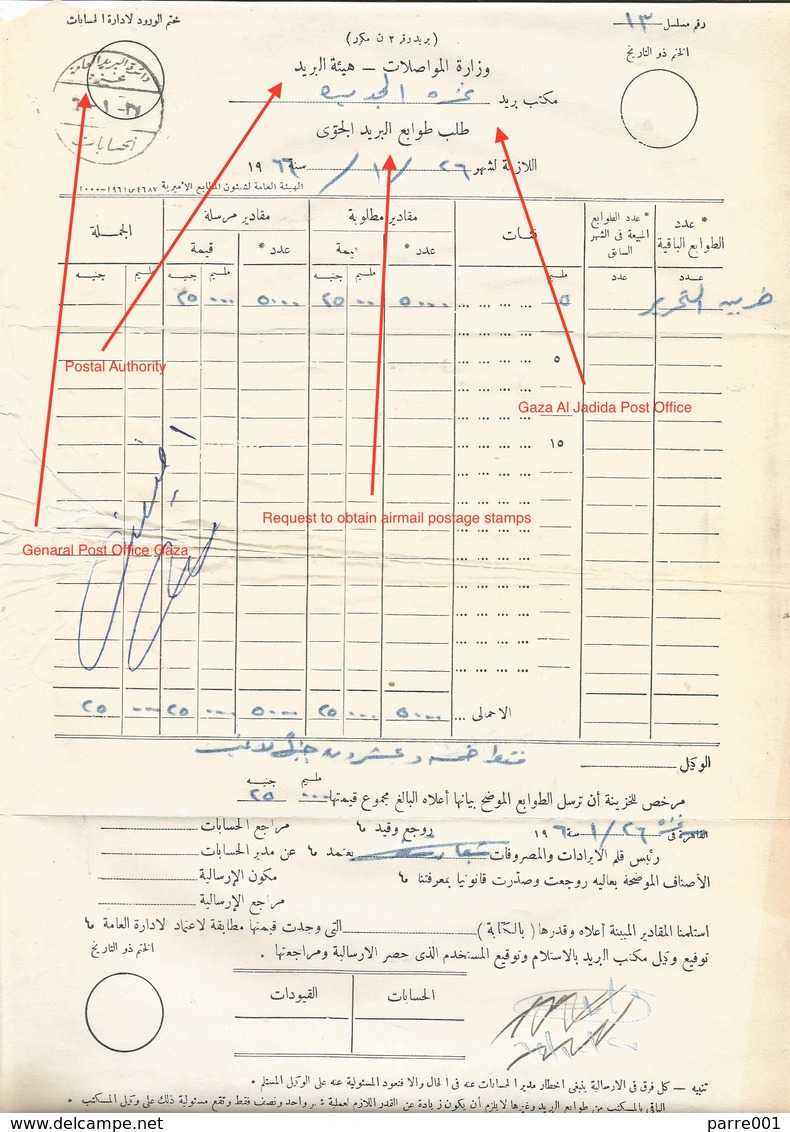 ختم الورود لادارة الحسابات
رقم مسلسل ١٣
( بريد رقم ٢ ن مكرر )
الختم ذو التاريخ
وزارة المواصلات — هيئة البريد
مكتب بريد غزه الجديده
دائرة البريد العامة
غزة
الحسابات
طلب طوابع البريد الجوى
اللازمة لشهر ٢٦ / ١ / سنة ١٩٦٦
الهيئة العامة لشئون المطابع الأميرية ٤٦٨٧ س ١٩٦١-١٠٠٠
* عدد الطوابع الباقية
* عدد الطوابع المبيعة فى الشهر السابق
فئات
مقادير مطلوبة
مقادير مرسلة
الجملة
عدد *
قيمة
عدد *
قيمة
عدد
عدد
مليم
مليم
جنيه
مليم
جنيه
مليم
جنيه
ضريبه التحرير
٥ ... ... ... ...
٥٠٠٠ ... ٢٥ ٥٠٠٠ ... ٢٥
Postal Authority
٥
Gaza Al Jadida Post Office
١٥
Request to obtain airmail postage stamps
Genaral Post Office Gaza
الاجمالى ... ٥٠٠٠ ... ٢٥ ٥٠٠٠ ... ٢٥ ... ٢٥
الوكيل
فقط خمسه وعشرون جنيه لاغير
مليم جنيه
مرخص للخزينة أن ترسل الطوابع الموضح بيانها أعلاه البالغ مجموع قيمتها ... ٢٥
القاهرة فى غزه ٢٦ / ١ سنة ١٩٦ روجع وقيد ٠٦ مراجع الحسابات
رئيس قلم الايرادات والمصروفات يعتمد ٠٦ عن مدير الحسابات
الأصناف الموضحة بعاليه روجعت وصدّرت قانونيا بمعرفتنا ٠٦ مكون الإرسالية
مراجع الإرسالية
استلمنا المقادير المبينة أعلاه وقدرها ( بالكتابة ) التى وجدت قيمتها مطابقة لاعتماد لادارة العامة ٠٦
توقيع وكيل مكتب البريد بالاستلام وتوقيع المستخدم الذى حصر الارسالية ومراجعتها .
الختم ذو التاريخ
الحسابات القيودات
تنبيه — كل فرق فى الارسالية ينبغى اخطار مدير الحسابات عنه فى الحال والا فتعود المسئولية عنه على الوكيل المستلم *
الباقى بالمكتب من طوابع البريد وغيرها يلزم أن يكون زيادة عن القدر اللازم لعملية شهر واحد ونصف فقط وتقع مسئولية ذلك على وكيل المكتب *
delcampe.net
parre001